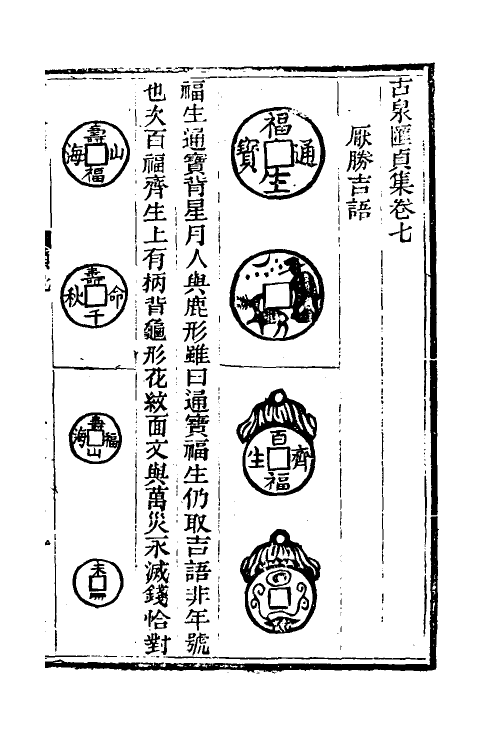 古泉匯貞集卷七
厭勝吉語
福生通寶
百福齊生
福生通寶背星月人與鹿形雖曰通寶福生仍取吉語非年號
也次百福齊生上有柄背龜形花紋面文與萬災永滅錢恰對
壽福山海
壽千命秋
壽山福海